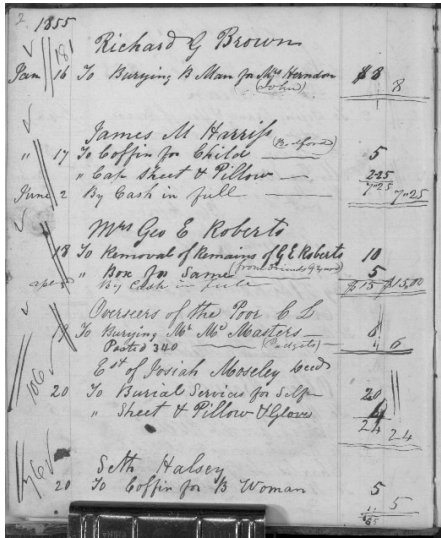 2 1855
181
Richard G Brown
Jan 16 To Burying B Man for Mrs Herndon $8 8
(John)
James M Harriss
(Bedford)
" 17 To Coffin for Child 5
" Cap Sheet & Pillow 2.25
7.25
June 2 By Cash in full 7.25
Mrs Geo E Roberts
18 To Removal of Remains of G E Roberts 10
" Box for Same (from Friends G Yard) 5
By Cash in full $15 $15.00
Overseers of the Poor C L
19 To Burying Mr Mc Masters 6
Posted 340 (Padgets) 6
Est of Josiah Moseley Decd
106
20 To Burial Services for Self 20
" Sheet & Pillow & Gloves 4
24 24
76
Seth Halsey
20 To Coffin for B Woman 5
5